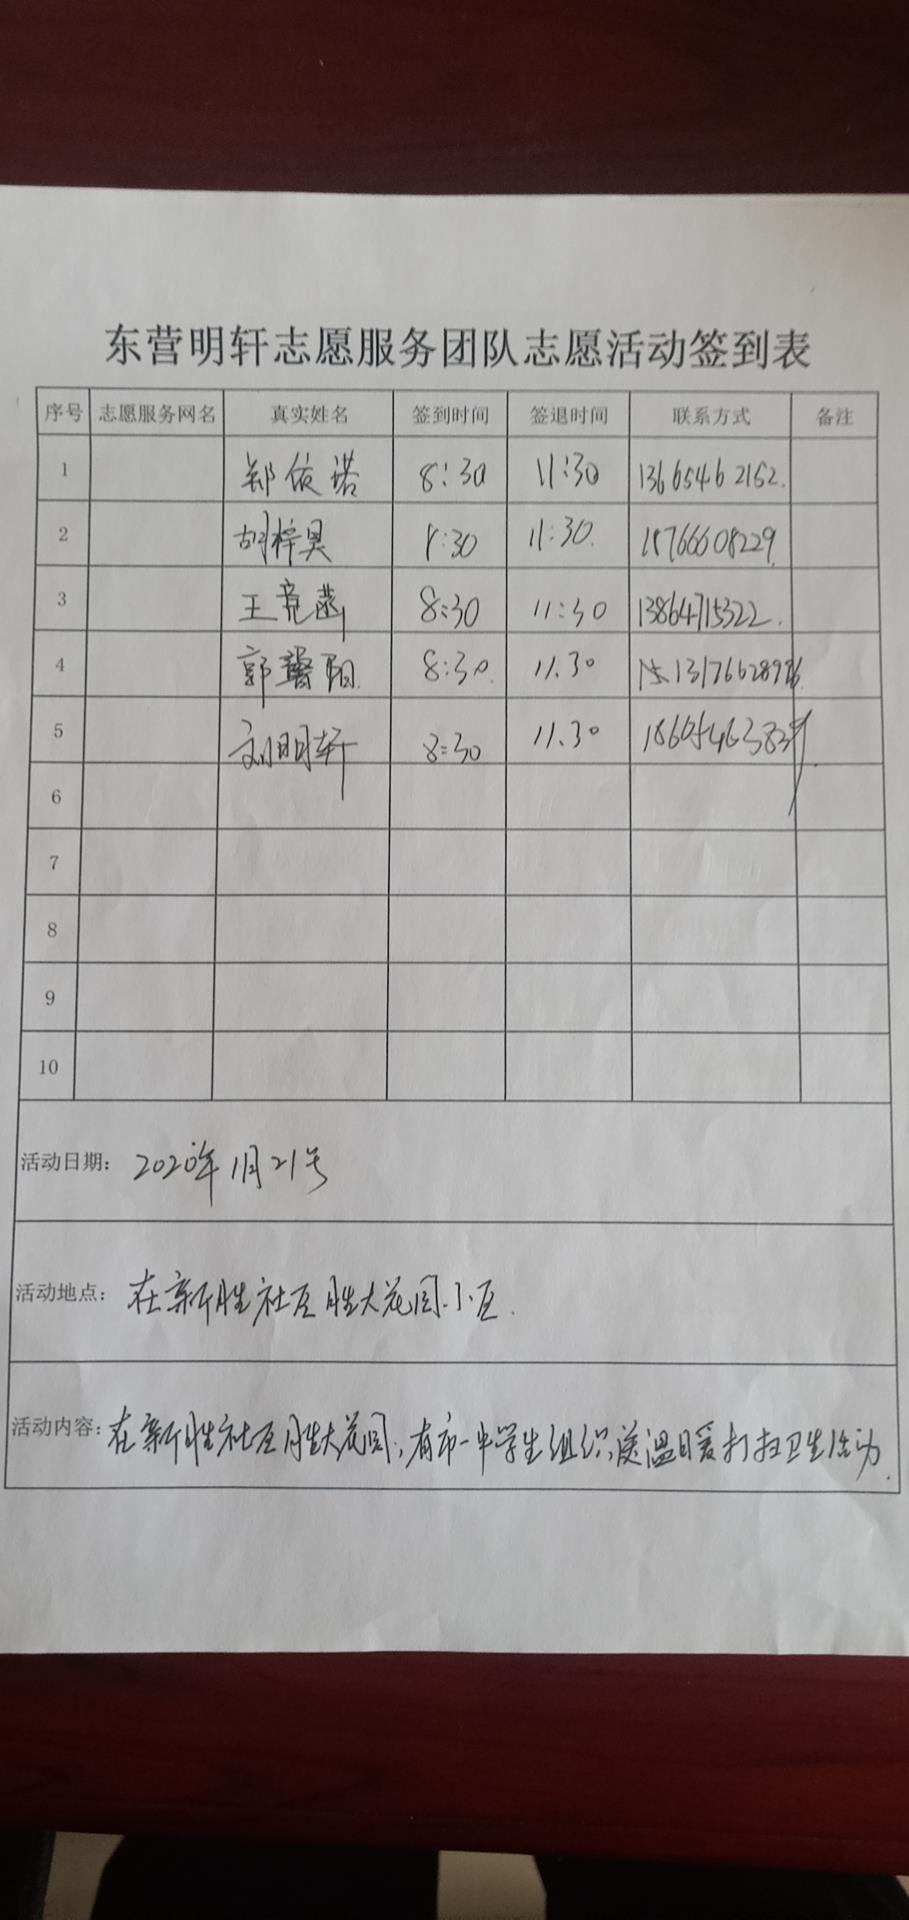 东营明轩志愿服务团队志愿活动签到表
序号 志愿服务网名 真实姓名 签到时间 签退时间 联系方式 备注
1 郑依诺 8:30 11:30 13665462152.
2 胡梓昊 8:30 11:30. 18766608229.
3 王竞菡 8:30 11:30 13864715322.
4 郭馨阳. 8:30. 11.30
5 刘明轩 8:30 11.30
6
7
8
9
10
活动日期: 2020年1月21号
活动地点: 在新胜社区胜大花园小区.
活动内容: 在新胜社区胜大花园,有市一中学生组织,送温暖打扫卫生活动.